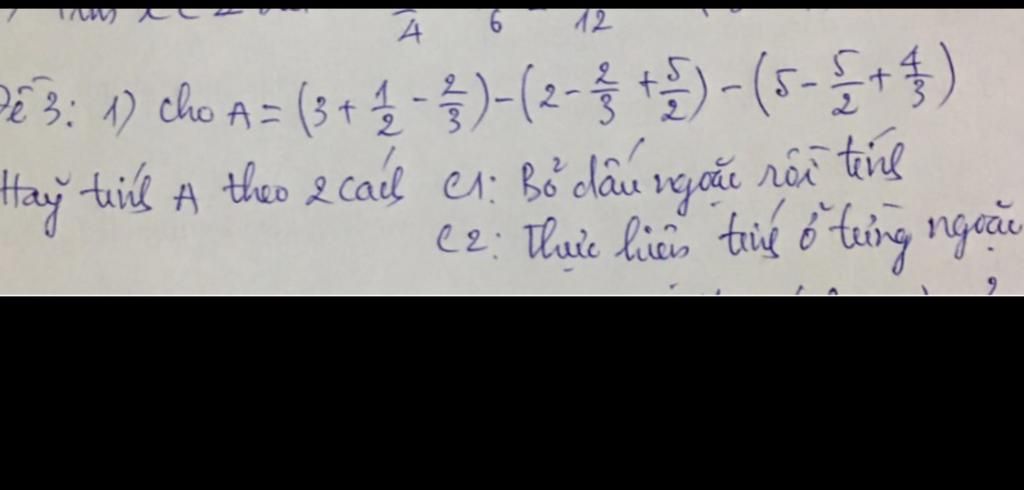 A 6 12
Đề 3: 1) Cho A = (3 + 1/2 - 2/3) - (2 - 2/3 + 5/2) - (5 - 5/2 + 4/3)
Hãy tính A theo 2 cách C1: Bỏ dấu ngoặc rồi tính
C2: Thực hiện tính ở từng ngoặc